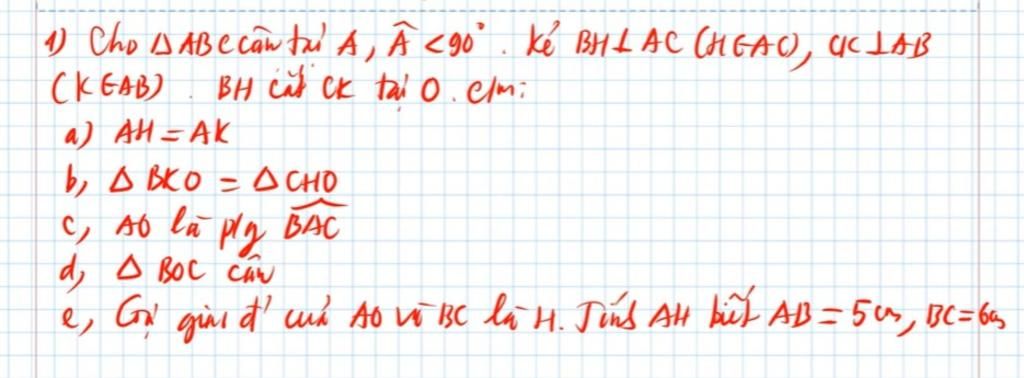 1) Cho △ABC cân tại A, Â < 90°. Kẻ BH ⊥ AC (H ∈ AC), CK ⊥ AB
(K ∈ AB). BH cắt CK tại O. C/m:
a) AH = AK
b, △BKO = △CHO
c, AO là p/g \widehat{BAC}
d, △BOC cân
e, Gọi giao đ' của AO và BC là H. Tính AH biết AB = 5cm, BC = 6cm